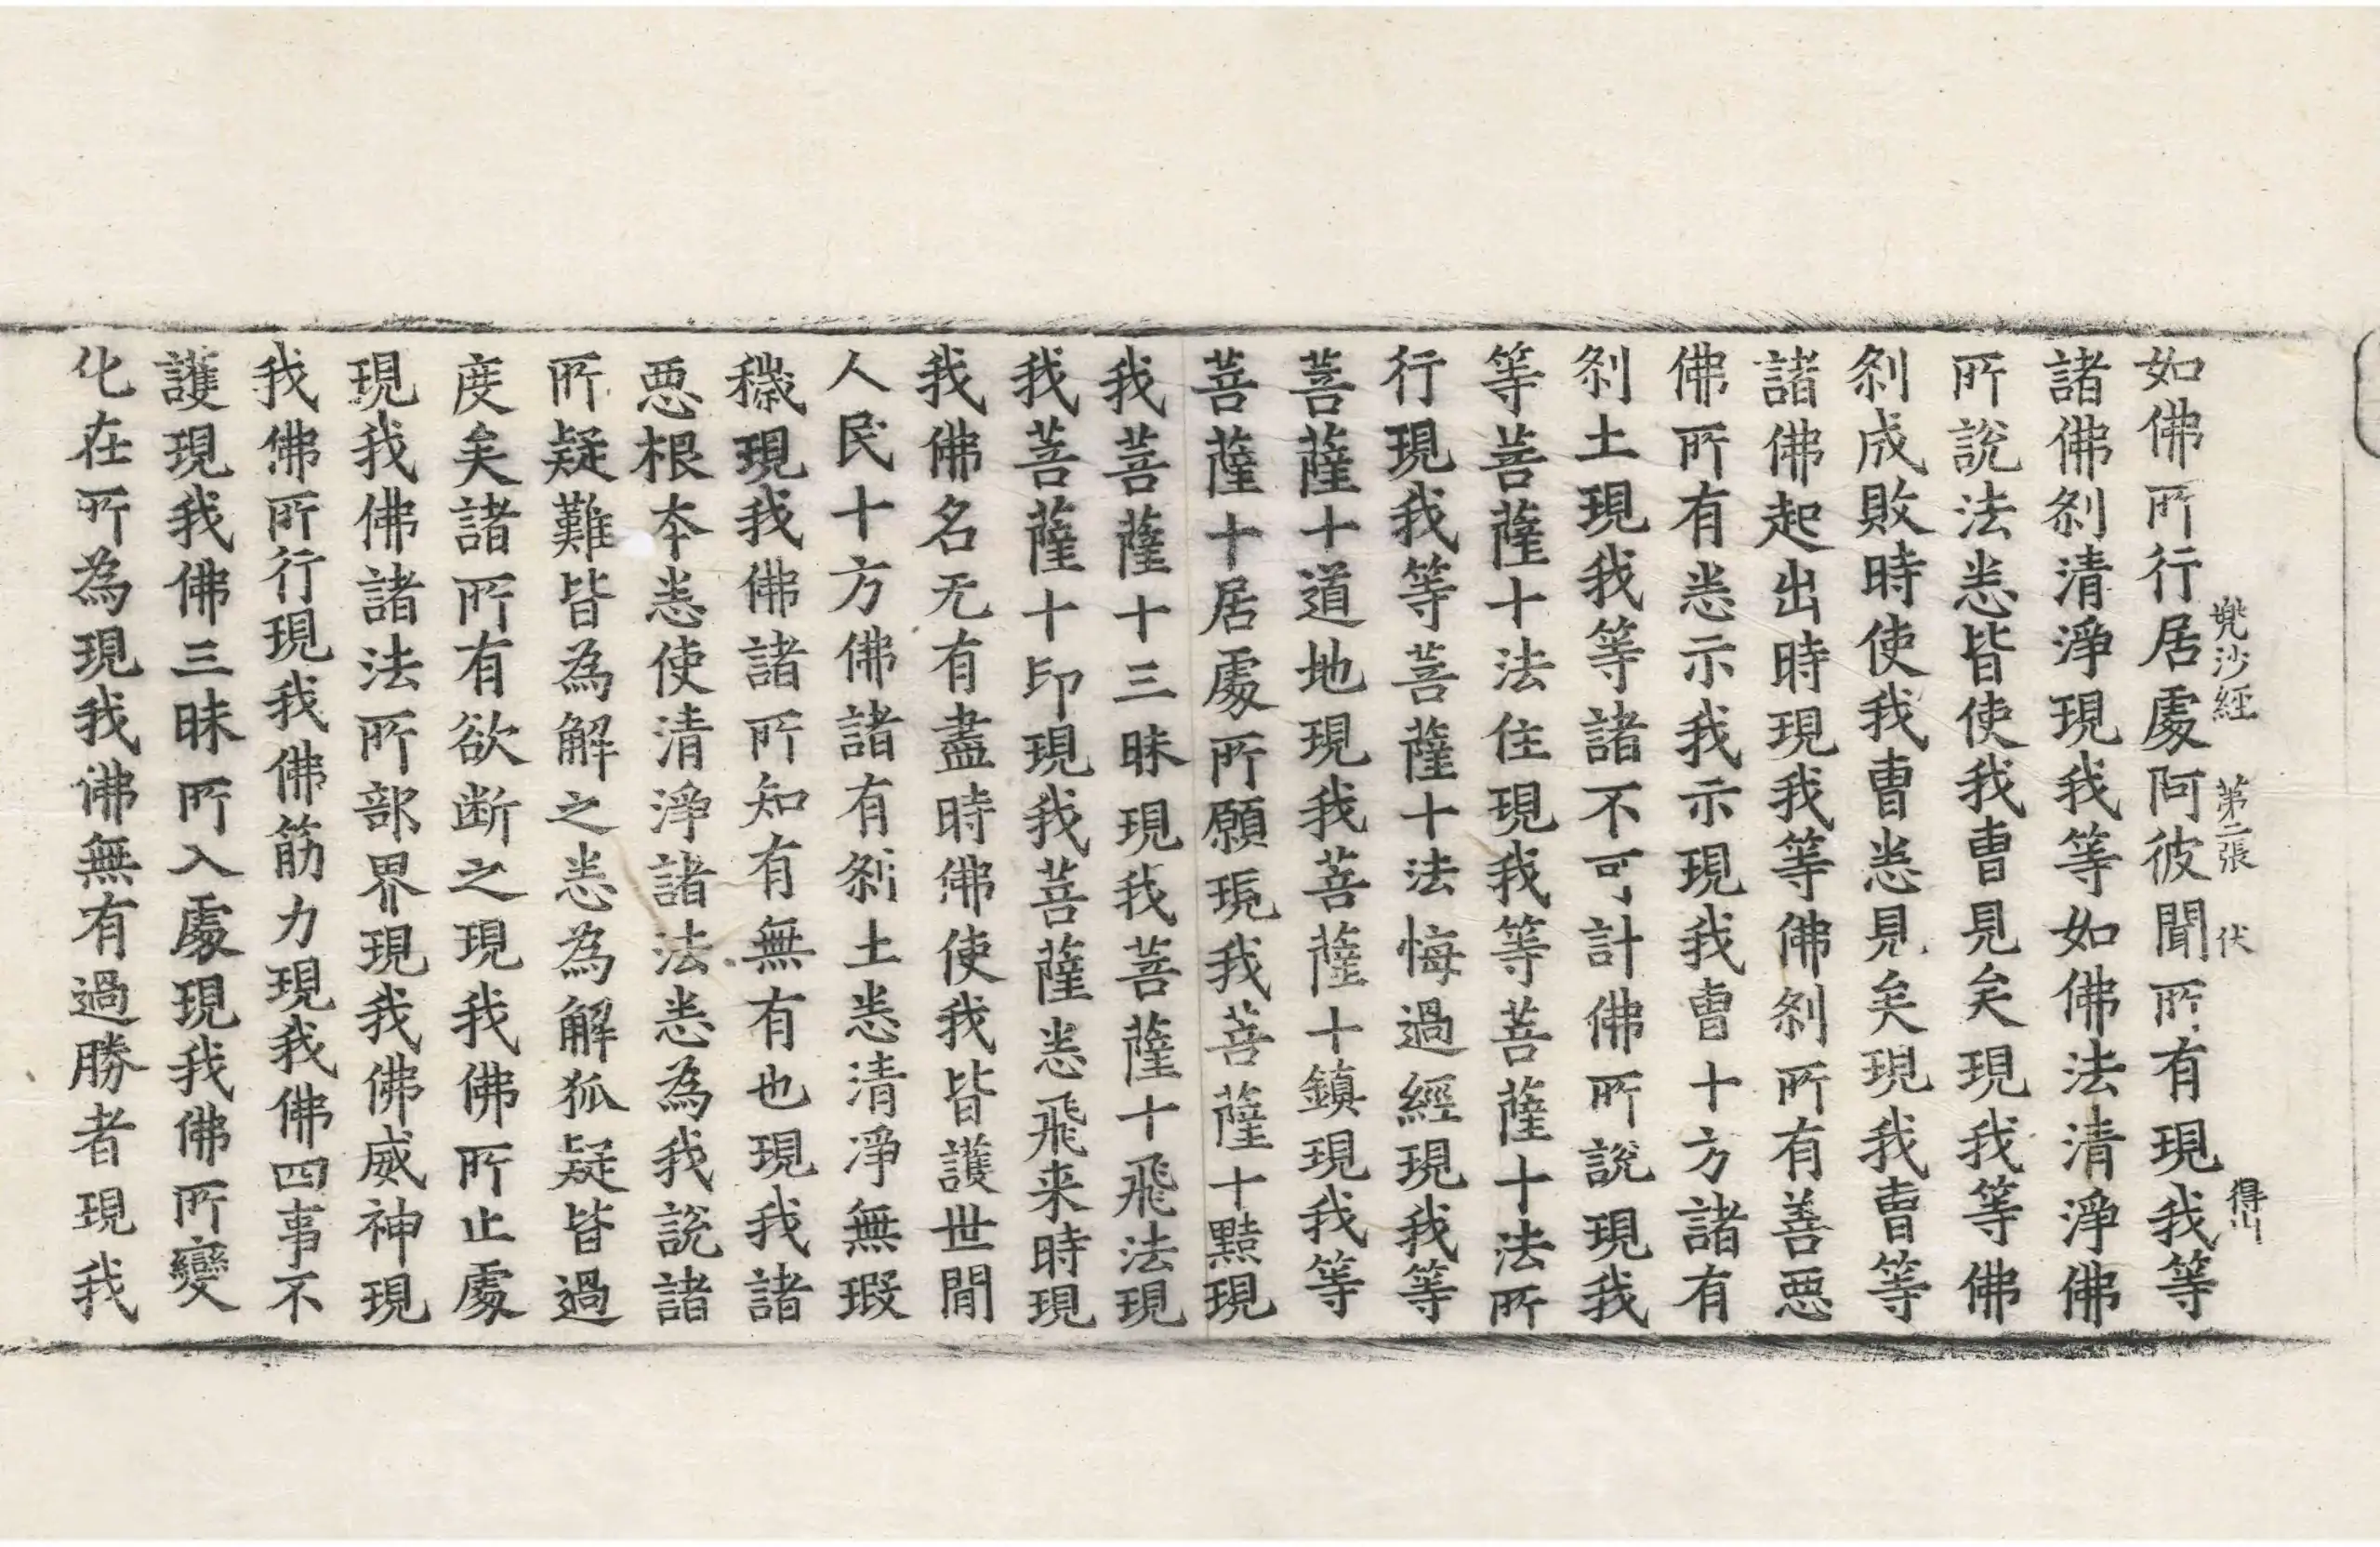 兠沙經 第二張 伏 得山
如佛所行居處阿彼聞所有現我等
諸佛刹清淨現我等如佛法清淨佛
所說法悉皆使我曹見矣現我等佛
刹成敗時使我曹悉見矣現我曹等
諸佛起出時現我等佛刹所有善惡
佛所有悉示我示現我曹十方諸有
刹土現我等諸不可計佛所說現我
等菩薩十法住現我等菩薩十法所
行現我等菩薩十法悔過經現我等
菩薩十道地現我菩薩十鎮現我等
菩薩十居處所願現我菩薩十黠現
我菩薩十三昧現我菩薩十飛法現
我菩薩十印現我菩薩悉飛来時現
我佛名无有盡時佛使我皆護世閒
人民十方佛諸有刹土悉清淨無瑕
穢現我佛諸所知有無有也現我諸
惡根本悉使清淨諸法悉為我說諸
所疑難皆為解之悉為解狐疑皆過
度矣諸所有欲断之現我佛所止處
現我佛諸法所部界現我佛威神現
我佛所行現我佛筋力現我佛四事不
護現我佛三昧所入處現我佛所變
化在所為現我佛無有過勝者現我